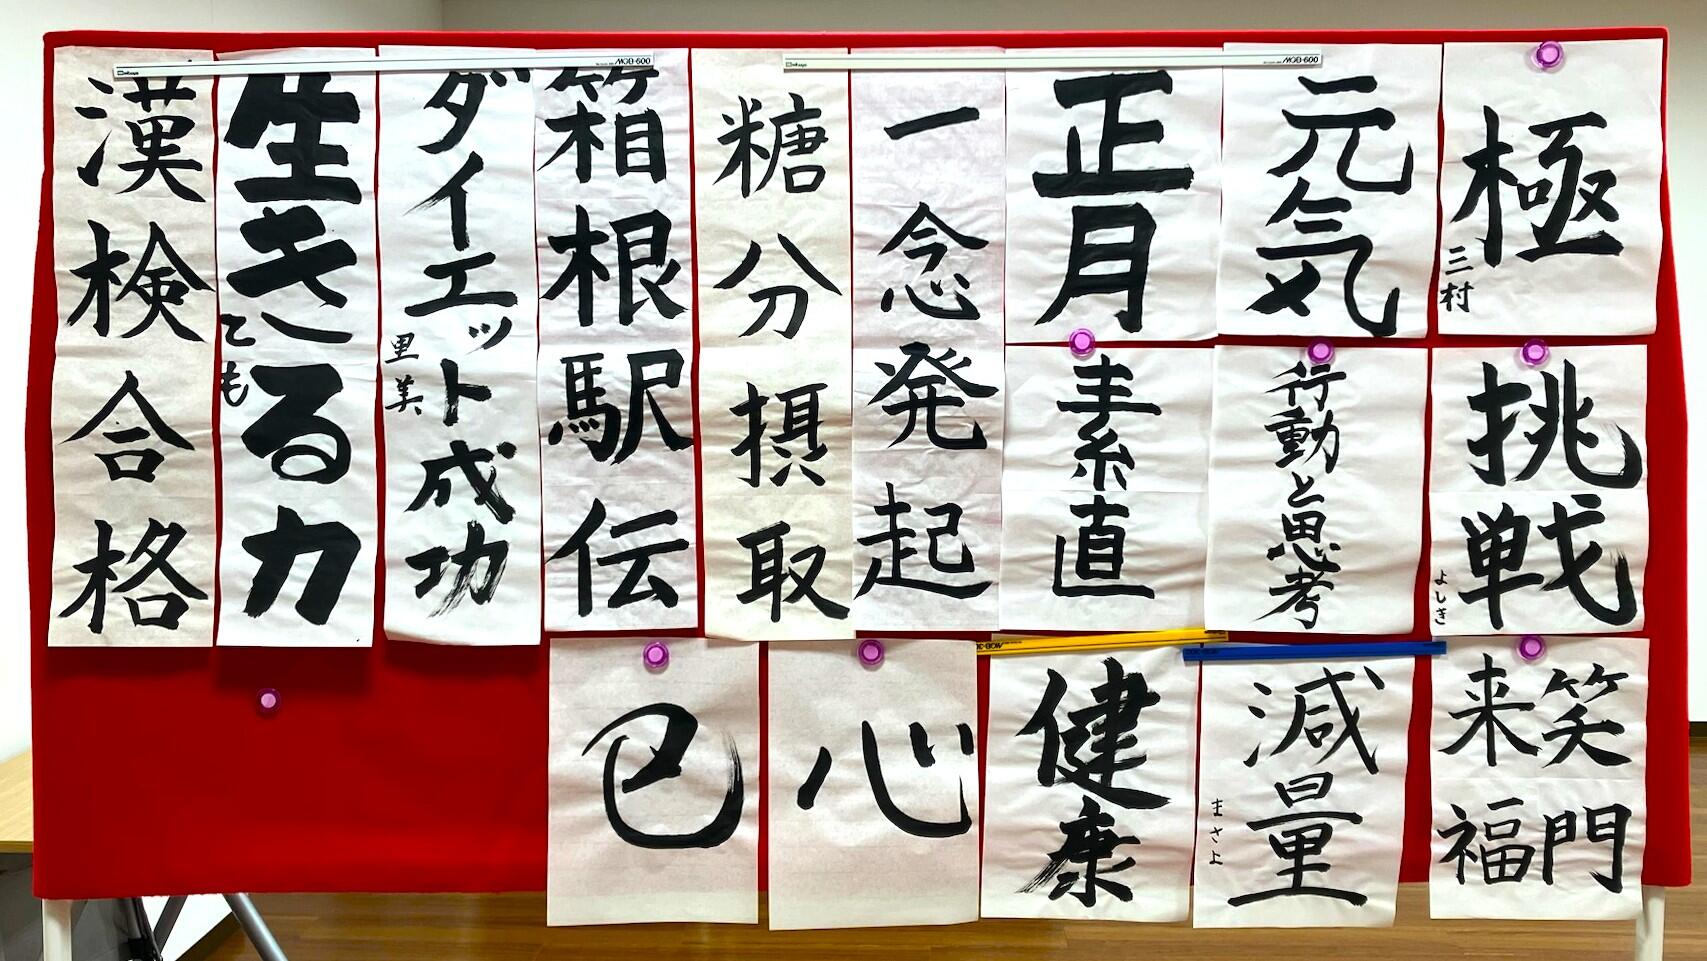 極
三村
元気
正月
一念発起
糖分摂取
箱根駅伝
ダイエット成功
里美
生きる力
とも
漢検合格
挑戦
よしき
行動と思考
素直
笑門
来福
減量
まさよ
健康
心
巳
MGB-600
MGB-600